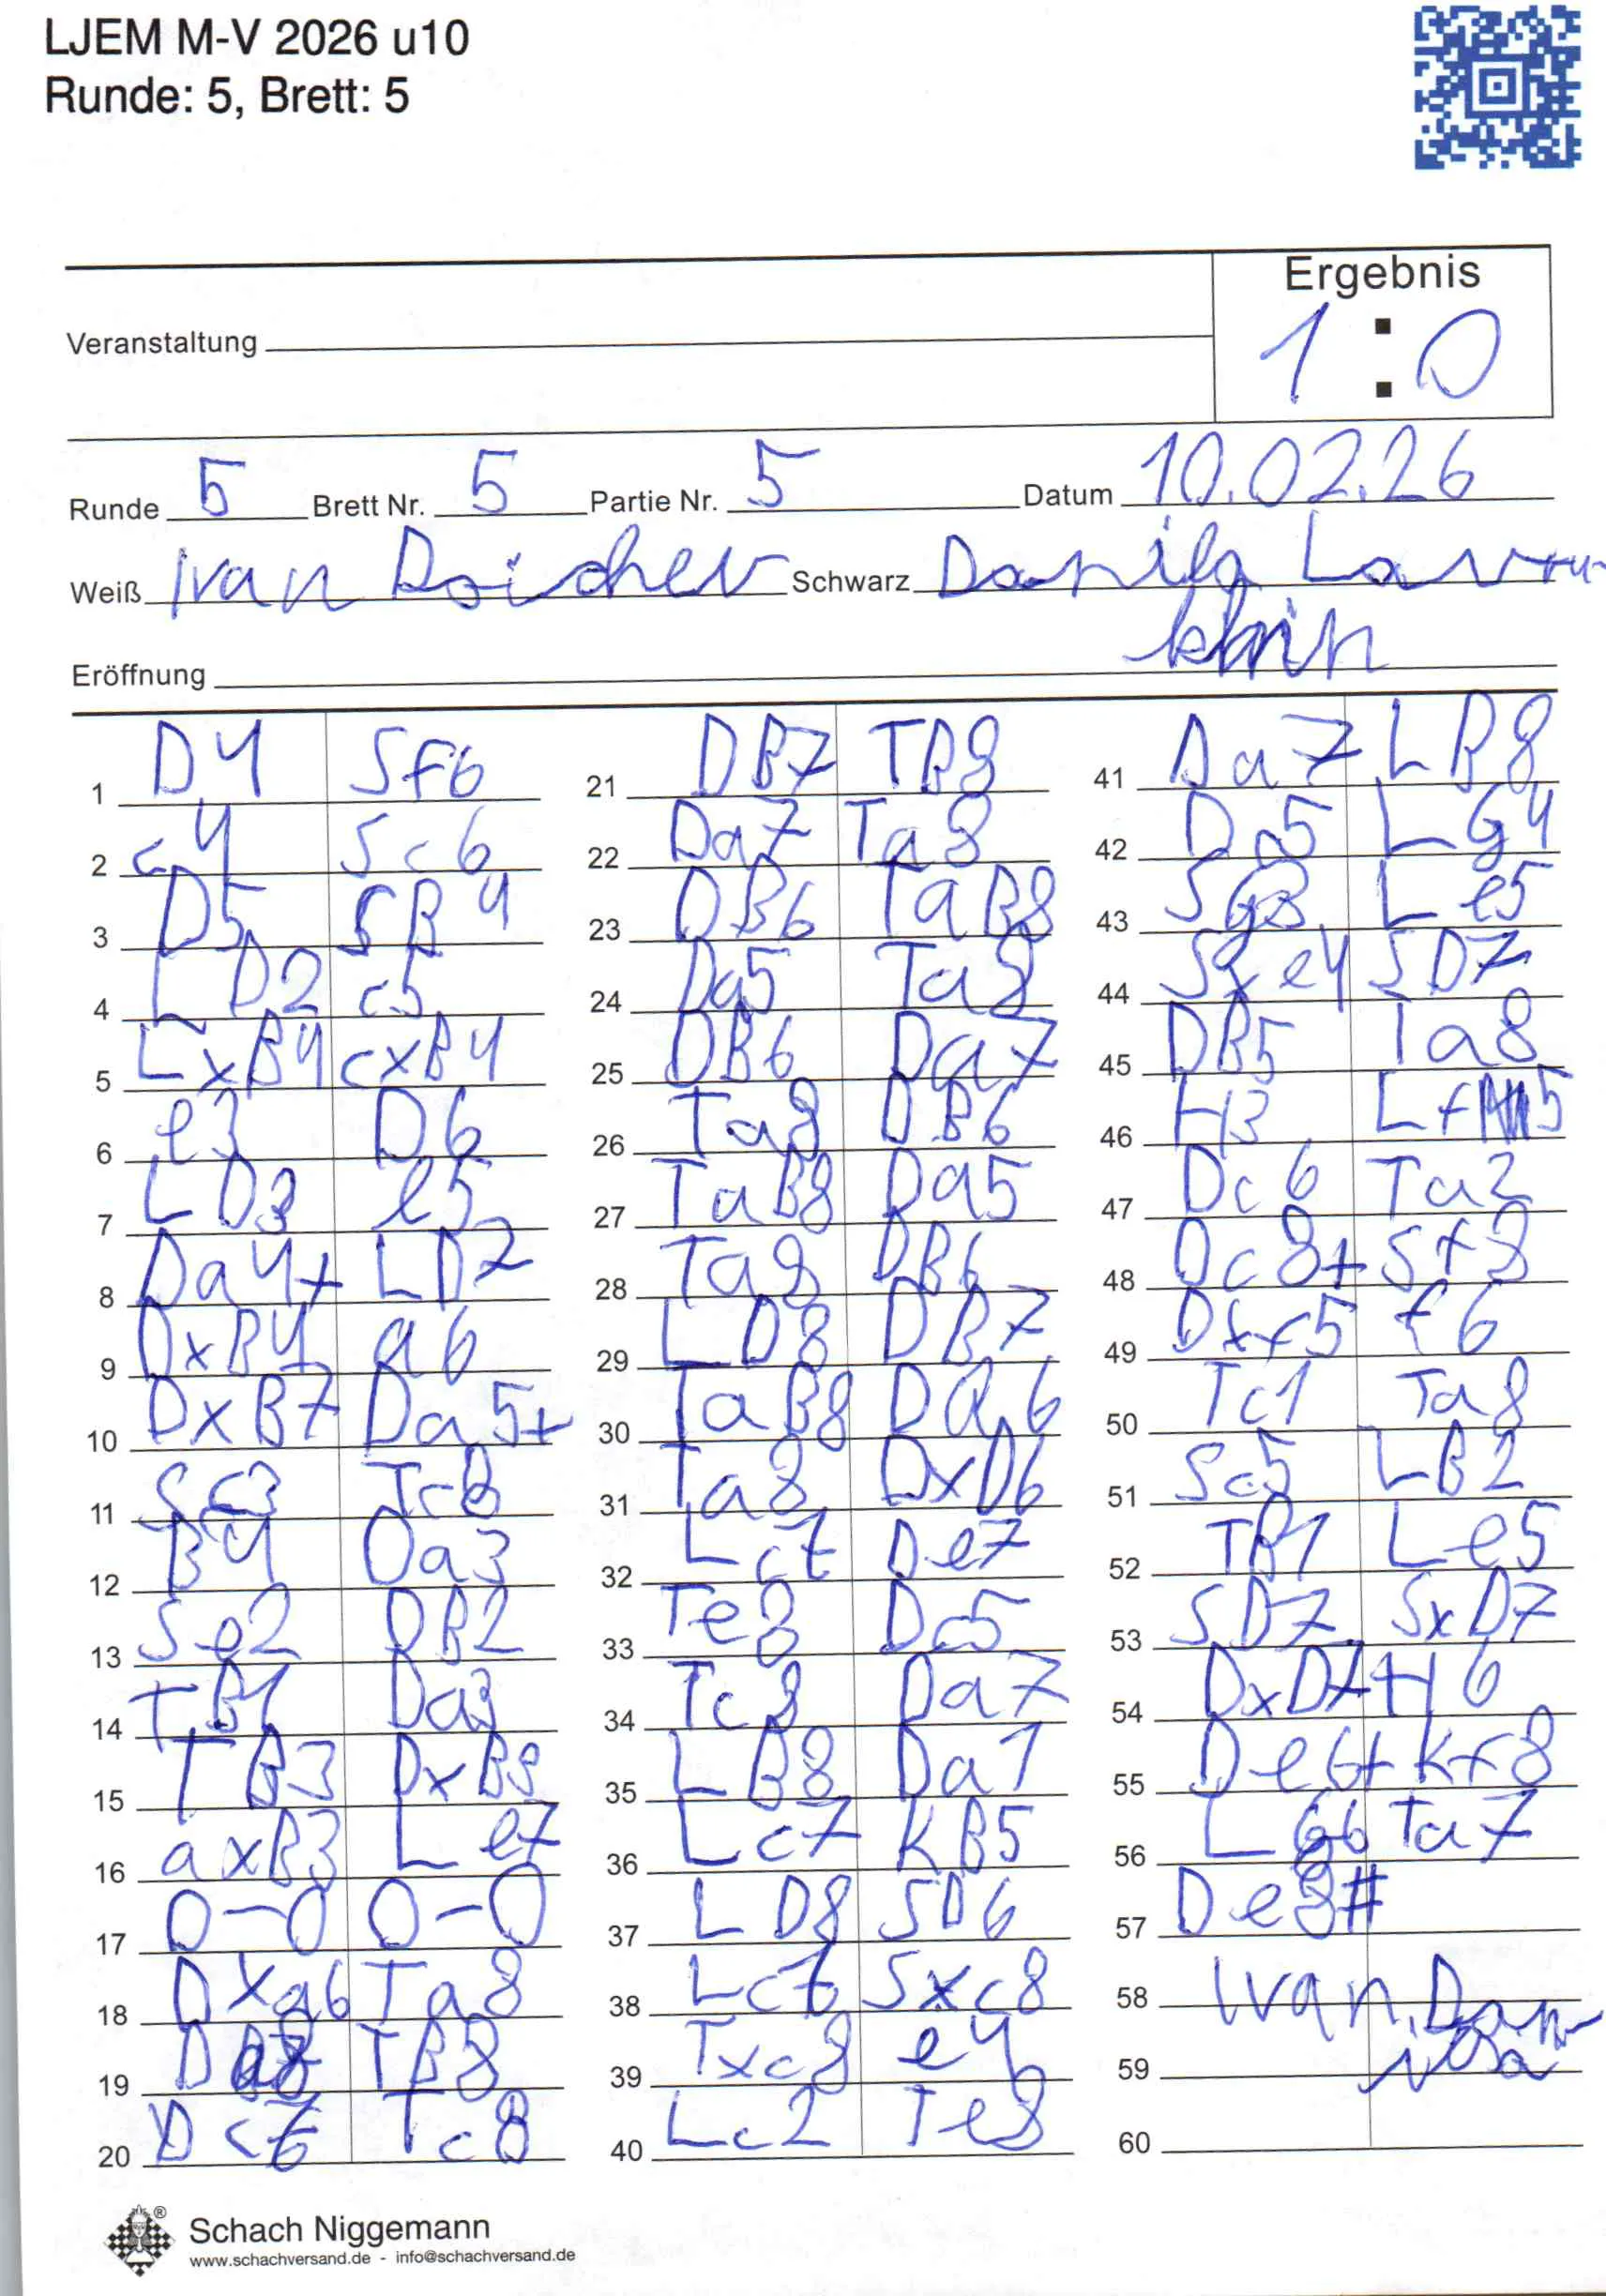 LJEM M-V 2026 u10
Runde: 5, Brett: 5
Ergebnis
Veranstaltung 1 : 0
Runde 5 Brett Nr. 5 Partie Nr. 5 Datum 10.02.26
Weiß Ivan Schwarz Danila
Eröffnung
1 D4 Sf6
2 c4 Sc6
3 D5 SB4
4 LD2 c5
5 LxB4 cxB4
6 e3 D6
7 LD3 e5
8 Da4+ LD7
9 DxB4 a6
10 DxB7 Da5+
11 Sc3 Tc8
12 B4 Da3
13 Se2 DB2
14 TB1 Da3
15 TB3 DxB3
16 axB3 Le7
17 0-0 0-0
18 Dxa6 Ta8
19 TB8
20 Tc8
21 DB7 TB8
22 Da7 Ta8
23 DB6 TaB8
24 Da5 Ta8
25 DB6 Da7
26 Ta8 DB6
27 TaB8 Da5
28 Ta8 DB6
29 LD8 DB7
30 TaB8 Da6
31 Ta8 DxD6
32 Lc7 De7
33 Te8 Dc5
34 Tc8 Da7
35 LB8 Da1
36 Lc7 KB5
37 LD8 SD6
38 Lc7 Sxc8
39 Txc8 e4
40 Lc2 Te8
41 Da7 LB8
42 Da5 LG4
43 SG3 Le5
44 Sxe4 SD7
45 DB5 Ta8
46 H3 Lf5
47 Dc6 Ta2
48 Dc8+ Sf8
49 Dxf5 f6
50 Tc1 Ta8
51 Sc5 LB2
52 TB1 Le5
53 SD7 SxD7
54 DxD7 H6
55 De6+ Kf8
56 LG6 Ta7
57 De8#
58 Ivan
59
60
Schach Niggemann
www.schachversand.de - info@schachversand.de